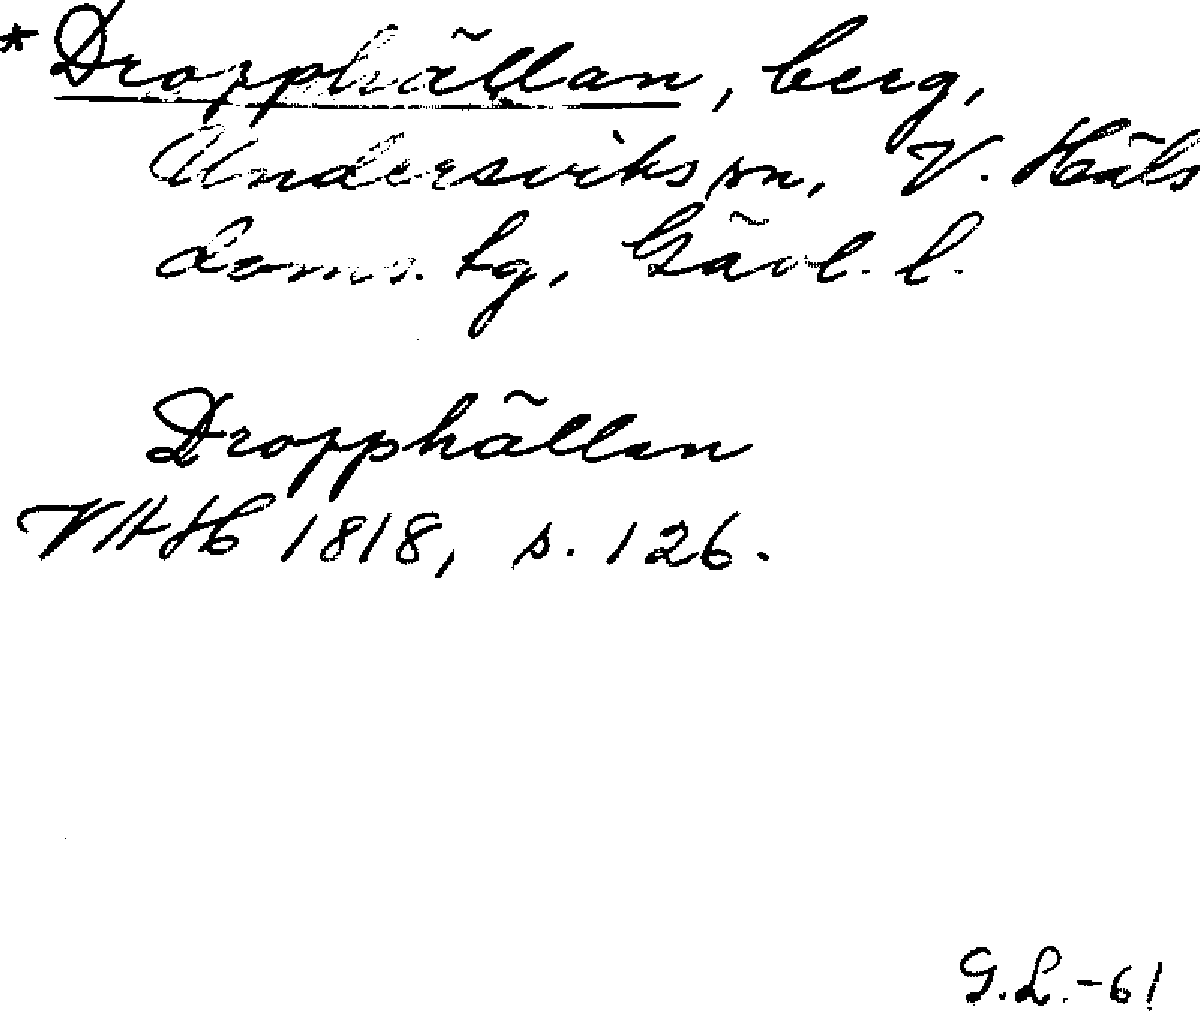 * Dropphällan, berg,
Undersviks sn, V. Häls
doms. hg, Gävl. l.
Dropphällan
VHAH 1818, s. 126.
G.L.-61